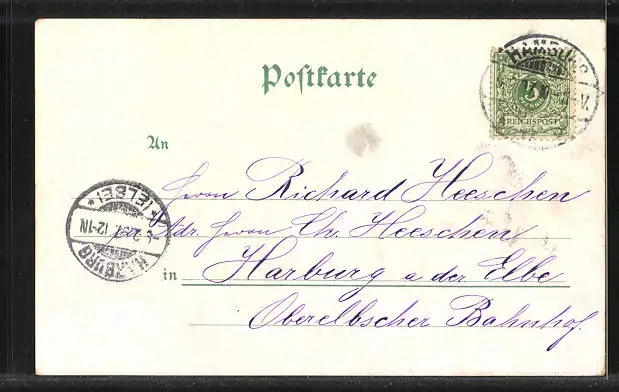 Postkarte
HAMBURG
V.
5
REICHSPOST
An
Herrn Richard Heeschen
Adr. Herrn Ch. Heeschen
in Harburg a der Elbe
Oberelbscher Bahnhof.
HARBURG
12-1N
*(ELBE)*